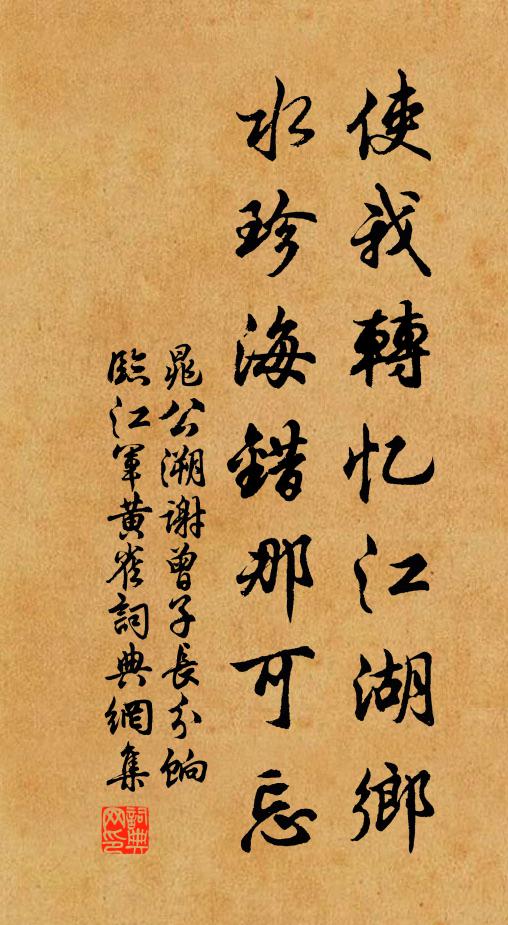 使我轉忆江湖鄉
水珍海錯那可忘
晁公溯謝曾子長分餉
臨江軍黄雀詞典網集
詞典网印